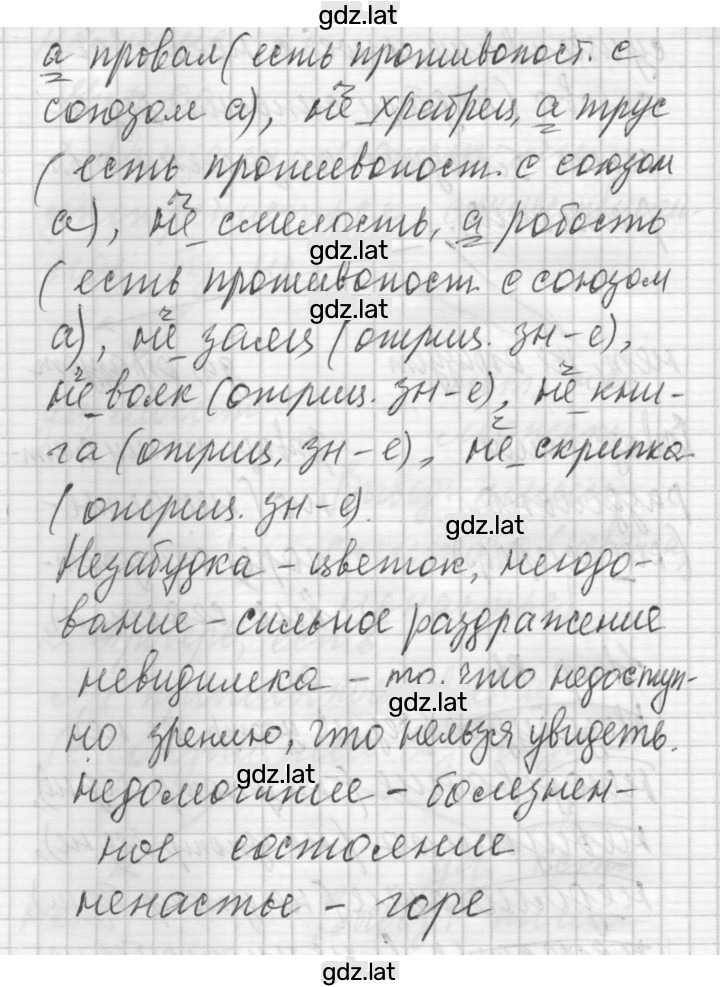 gdz.lat
а провал (есть противопост. с
союзом а), не храбрец, а трус
(есть противопост. с союзом
а), не смелость, а робость
gdz.lat
(есть противопост. с союзом
gdz.lat
а), не заяц (отриц. зн-е),
не волк (отриц. зн-е), не кни-
га (отриц. зн-е), не скрипка
(отриц. зн-е)
gdz.lat
Незабудка - цветок, негодо-
вание - сильное раздражение
невидимка - то, что недоступ-
gdz.lat
но зрению, что нельзя увидеть.
gdz.lat
недомогание - болезнен-
ное состояние
ненастье - горе
gdz.lat